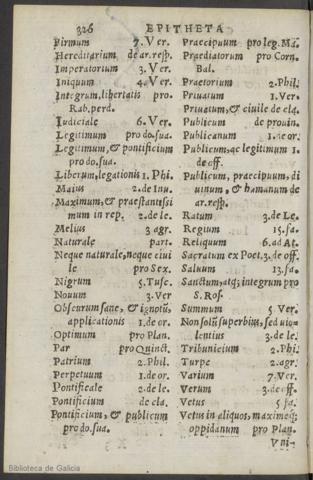 326 EPITHETA
Firmum 7. Ver.
Hereditarium de ar. resp.
Imperatorium 3. Ver.
Iniquum 4. Ver.
Integrum, libertatis pro
Rab. perd.
Iudiciale 6. Ver.
Legitimum pro do. sua.
Legitimum, & pontificium
pro do. sua.
Liberum, legationis 1. Phi.
Maius 2. de Inu.
Maximum, & præstantissi
mum in rep. 2. de le.
Melius 3 agr.
Naturale part.
Neque naturale, neque ciui
le pro Sex.
Nigrum 5. Tusc.
Nouum 3. Ver
Obscurum sane, & ignotũ,
applicationis 1. de or.
Optimum pro Plan.
Par pro Quinct.
Patrium 2. Phil.
Perpetuum 1. de or.
Pontificale 2. de le.
Pontificium de cla.
Pontificium, & publicum
pro do. sua.
Praecipuum pro leg. Mã.
Praediatorum pro Corn.
Bal.
Praetorium 2. Phil.
Priuatum 1. Ver.
Priuatum, & ciuile de cla.
Publicum de prouin.
Publicanum 1. de or.
Publicum, ac legitimum 1.
de off.
Publicum, praecipuum, di
uinum, & humanum de
ar. resp.
Ratum 3. de Le.
Regium 15. fa.
Reliquum 6. ad At.
Sacratum ex Poet. 3. de off.
Saluum 13. fa.
Sanctum, atq; integrum pro
S. Ros.
Summum 5 Ver.
Non solũ superbius, sed uio=
lentius 3. de le.
Tribunicium 2. Phi.
Turpe 2. agr.
Varium 7. Ver.
Verum 3. de off.
Vetus 5 fa.
Vetus in aliquos, maximeq;
oppidanum pro Plan.
Vni-
Biblioteca de Galicia